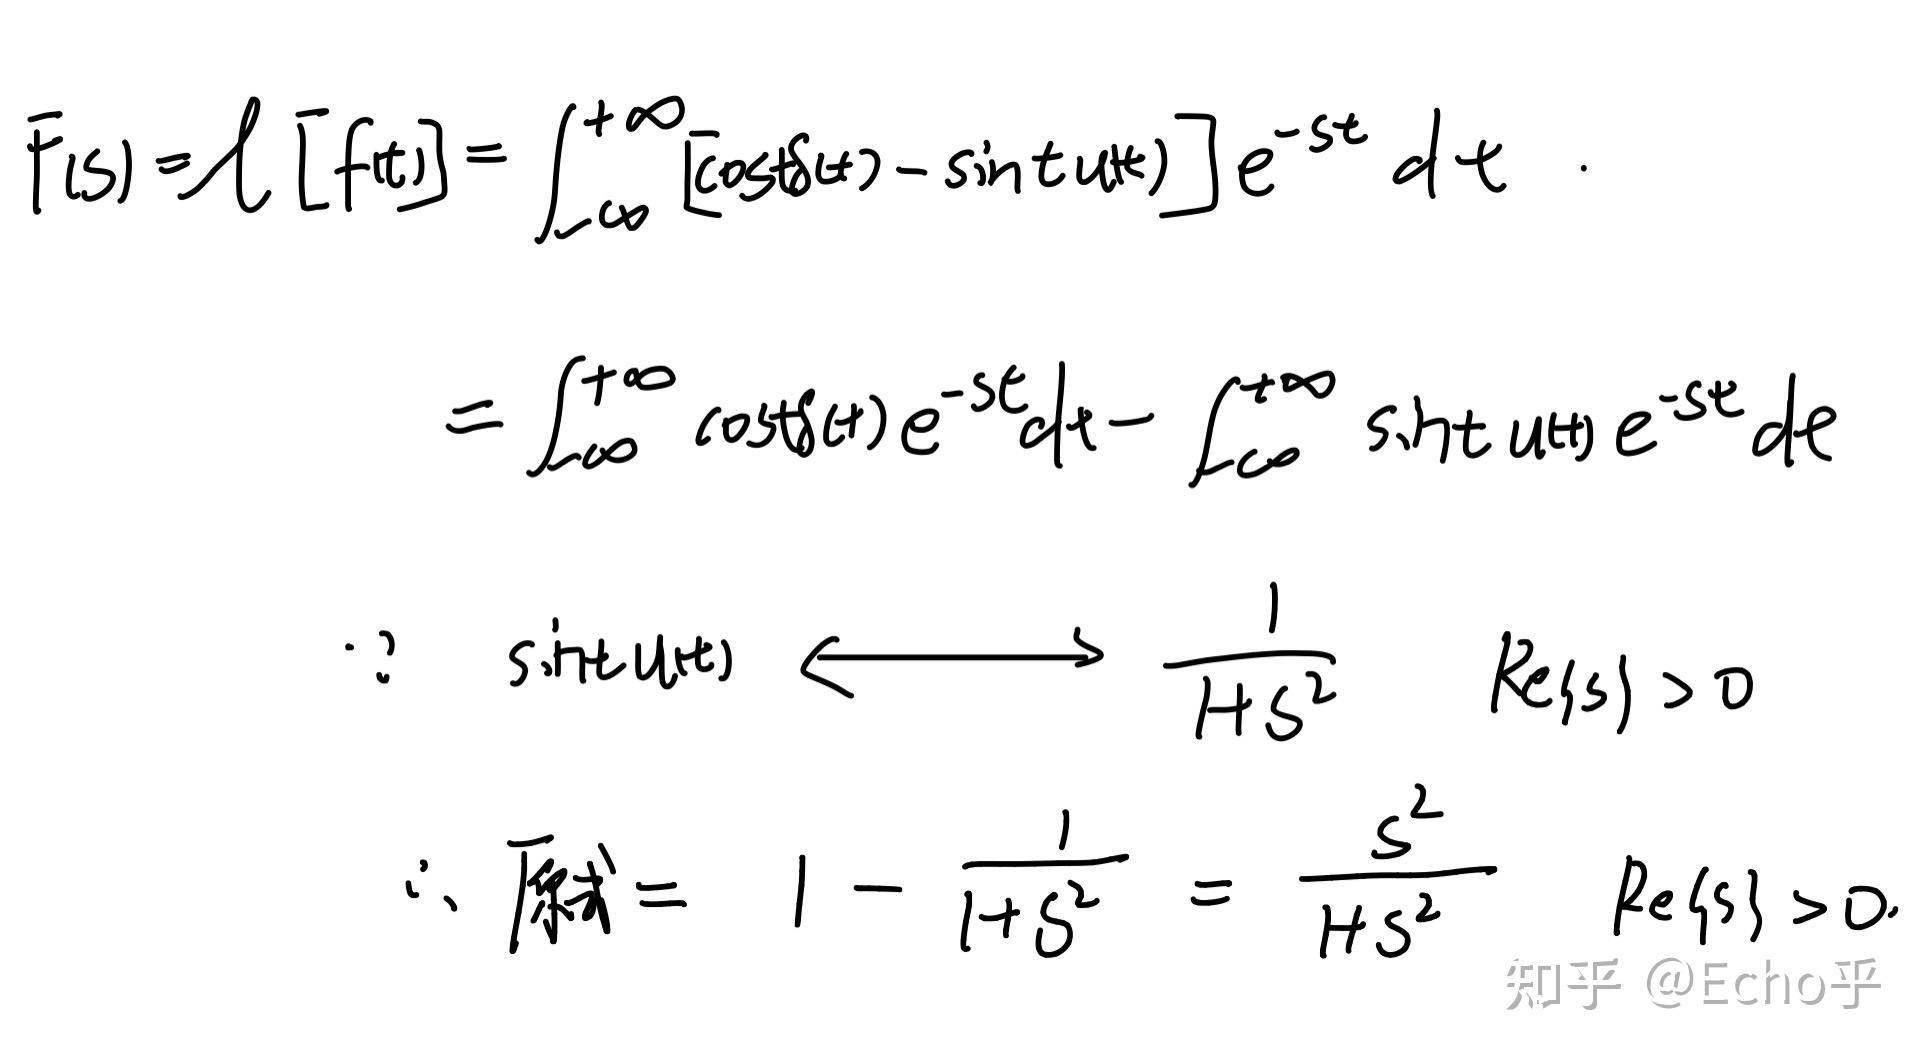 F(s) = ℒ[f(t)] = ∫_{-∞}^{+∞} [cost δ(t) - sint u(t)] e^{-st} dt .
= ∫_{-∞}^{+∞} cost δ(t) e^{-st} dt - ∫_{-∞}^{+∞} sint u(t) e^{-st} dt
∵ sint u(t) ⟷ 1/(1+s²) Re{s} > 0
∴ 原式 = 1 - 1/(1+s²) = s²/(1+s²) Re{s} > 0.
知乎 @Echo乎